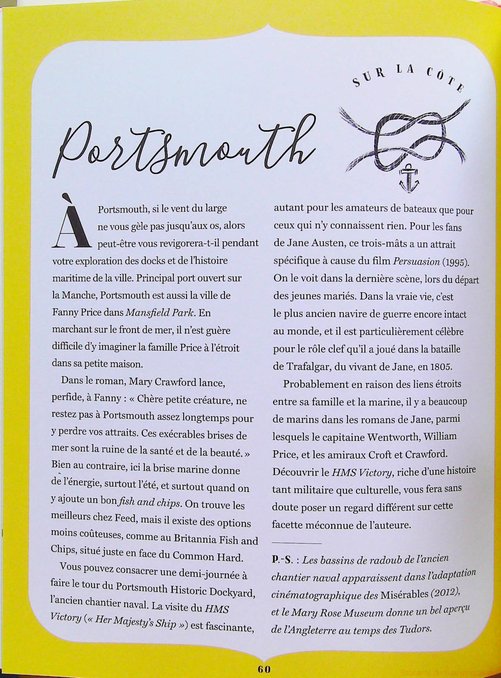 SUR LA CÔTE
Portsmouth
À Portsmouth, si le vent du large
ne vous gèle pas jusqu'aux os, alors
peut-être vous revigorera-t-il pendant
votre exploration des docks et de l'histoire
maritime de la ville. Principal port ouvert sur
la Manche, Portsmouth est aussi la ville de
Fanny Price dans Mansfield Park. En
marchant sur le front de mer, il n'est guère
difficile d'y imaginer la famille Price à l'étroit
dans sa petite maison.
Dans le roman, Mary Crawford lance,
perfide, à Fanny : « Chère petite créature, ne
restez pas à Portsmouth assez longtemps pour
y perdre vos attraits. Ces exécrables brises de
mer sont la ruine de la santé et de la beauté. »
Bien au contraire, ici la brise marine donne
de l'énergie, surtout l'été, et surtout quand on
y ajoute un bon fish and chips. On trouve les
meilleurs chez Feed, mais il existe des options
moins coûteuses, comme au Britannia Fish and
Chips, situé juste en face du Common Hard.
Vous pouvez consacrer une demi-journée à
faire le tour du Portsmouth Historic Dockyard,
l'ancien chantier naval. La visite du HMS
Victory (« Her Majesty's Ship ») est fascinante,
autant pour les amateurs de bateaux que pour
ceux qui n'y connaissent rien. Pour les fans
de Jane Austen, ce trois-mâts a un attrait
spécifique à cause du film Persuasion (1995).
On le voit dans la dernière scène, lors du départ
des jeunes mariés. Dans la vraie vie, c'est
le plus ancien navire de guerre encore intact
au monde, et il est particulièrement célèbre
pour le rôle clef qu'il a joué dans la bataille
de Trafalgar, du vivant de Jane, en 1805.
Probablement en raison des liens étroits
entre sa famille et la marine, il y a beaucoup
de marins dans les romans de Jane, parmi
lesquels le capitaine Wentworth, William
Price, et les amiraux Croft et Crawford.
Découvrir le HMS Victory, riche d'une histoire
tant militaire que culturelle, vous fera sans
doute poser un regard différent sur cette
facette méconnue de l'auteure.
P.-S. : Les bassins de radoub de l'ancien
chantier naval apparaissent dans l'adaptation
cinématographique des Misérables (2012),
et le Mary Rose Museum donne un bel aperçu
de l'Angleterre au temps des Tudors.
60